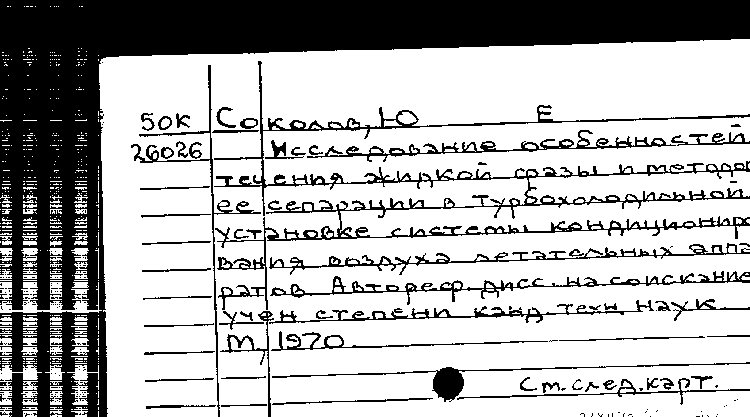 50К Соколов, Ю Е
26026 Исследование особенностей
течения жидкой фазы и методов
ее сепарации в турбохолодильной
установке системы кондициониро
вания воздуха летательных аппа
ратов. Автореф. дисс. на соискание
учен степени канд. техн. наук.
М, 1970.
См. след. карт.